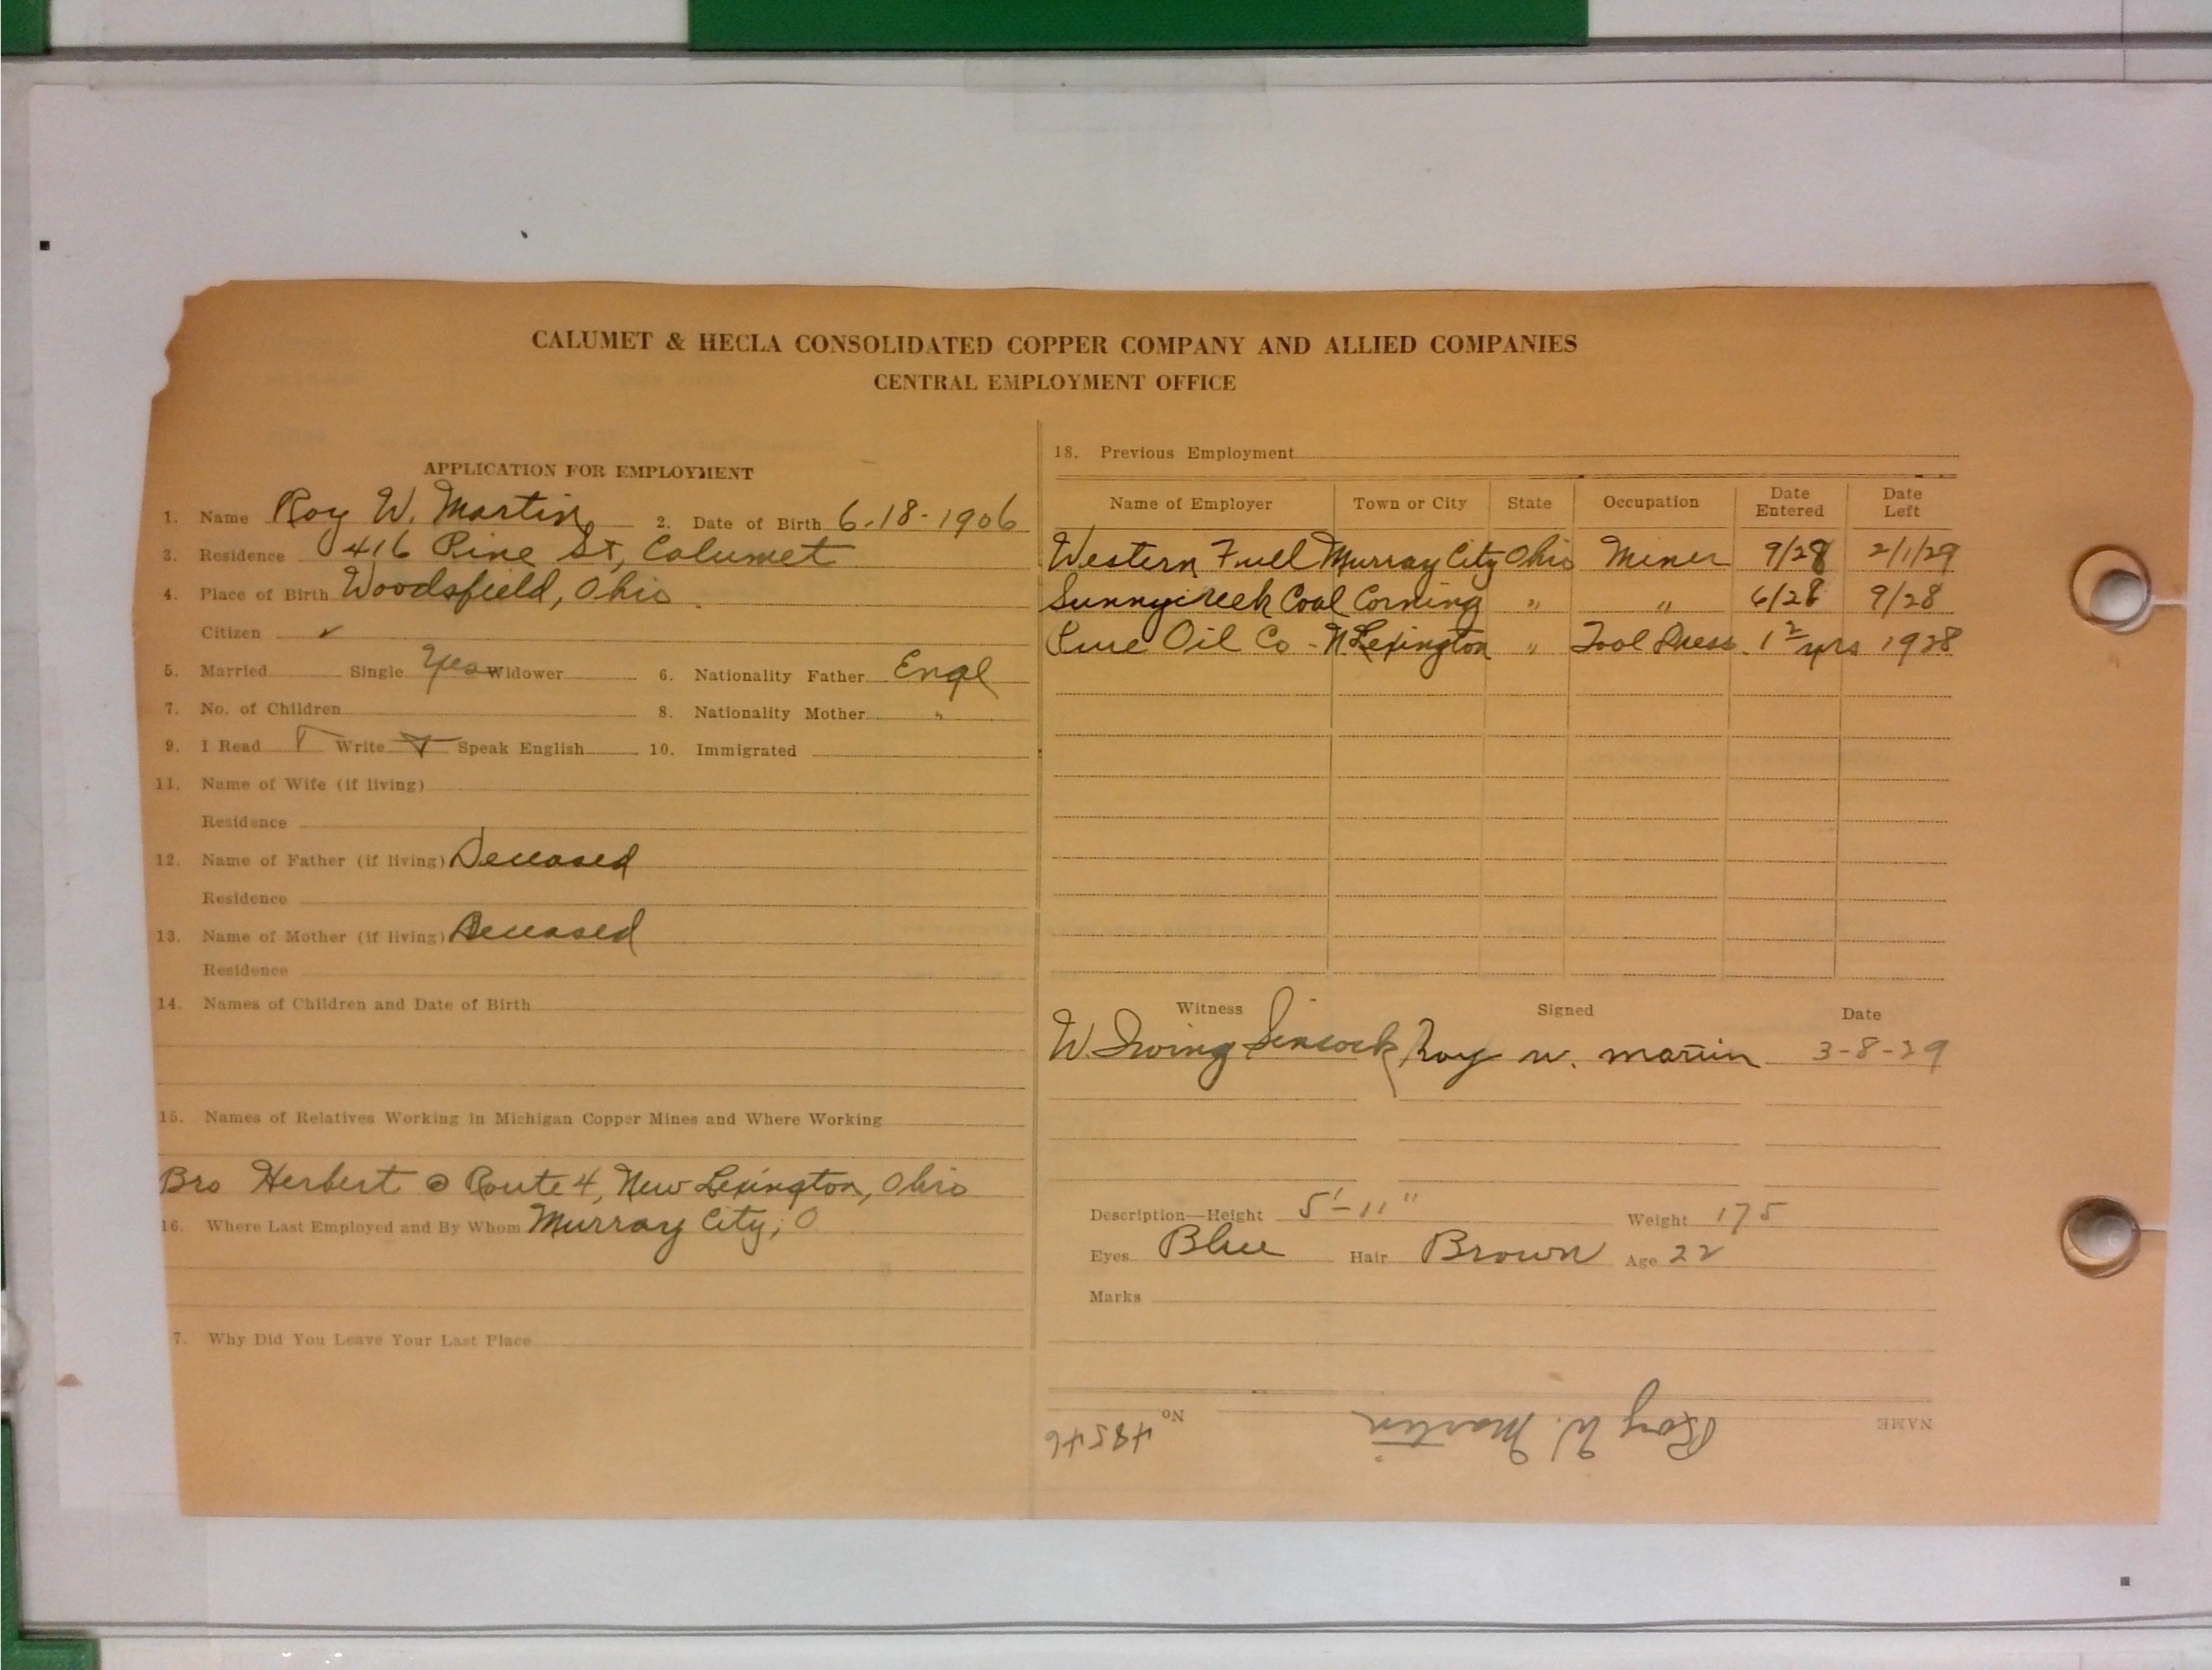 CALUMET & HECLA CONSOLIDATED COPPER COMPANY AND ALLIED COMPANIES
CENTRAL EMPLOYMENT OFFICE
APPLICATION FOR EMPLOYMENT
1. Name Roy W. Martin 2. Date of Birth 6-18-1906
3. Residence 416 Pine St, Calumet
4. Place of Birth Woodsfield, Ohio
Citizen ✓
5. Married Single Yes Widower 6. Nationality Father Engl
7. No. of Children 8. Nationality Mother "
9. I Read Write Speak English 10. Immigrated
11. Name of Wife (if living)
Residence
12. Name of Father (if living) Deceased
Residence
13. Name of Mother (if living) Deceased
Residence
14. Names of Children and Date of Birth
15. Names of Relatives Working in Michigan Copper Mines and Where Working
Bro Herbert Route 4, New Lexington, Ohio
16. Where Last Employed and By Whom Murray City, O
7. Why Did You Leave Your Last Place
18. Previous Employment
Name of Employer Town or City State Occupation Date Entered Date Left
Western Fuell Murray City Ohio Miner 9/28 2/1/29
Sunnycreek Coal Corning " " 6/28 9/28
Pure Oil Co - N Lexington " Tool Dress 1 yrs 1928
Witness Signed Date
W. Irving Sincock Roy W. Martin 3-8-29
Description—Height 5'-11" Weight 175
Eyes Blue Hair Brown Age 22
Marks
NAME Roy W. Martin No 48546